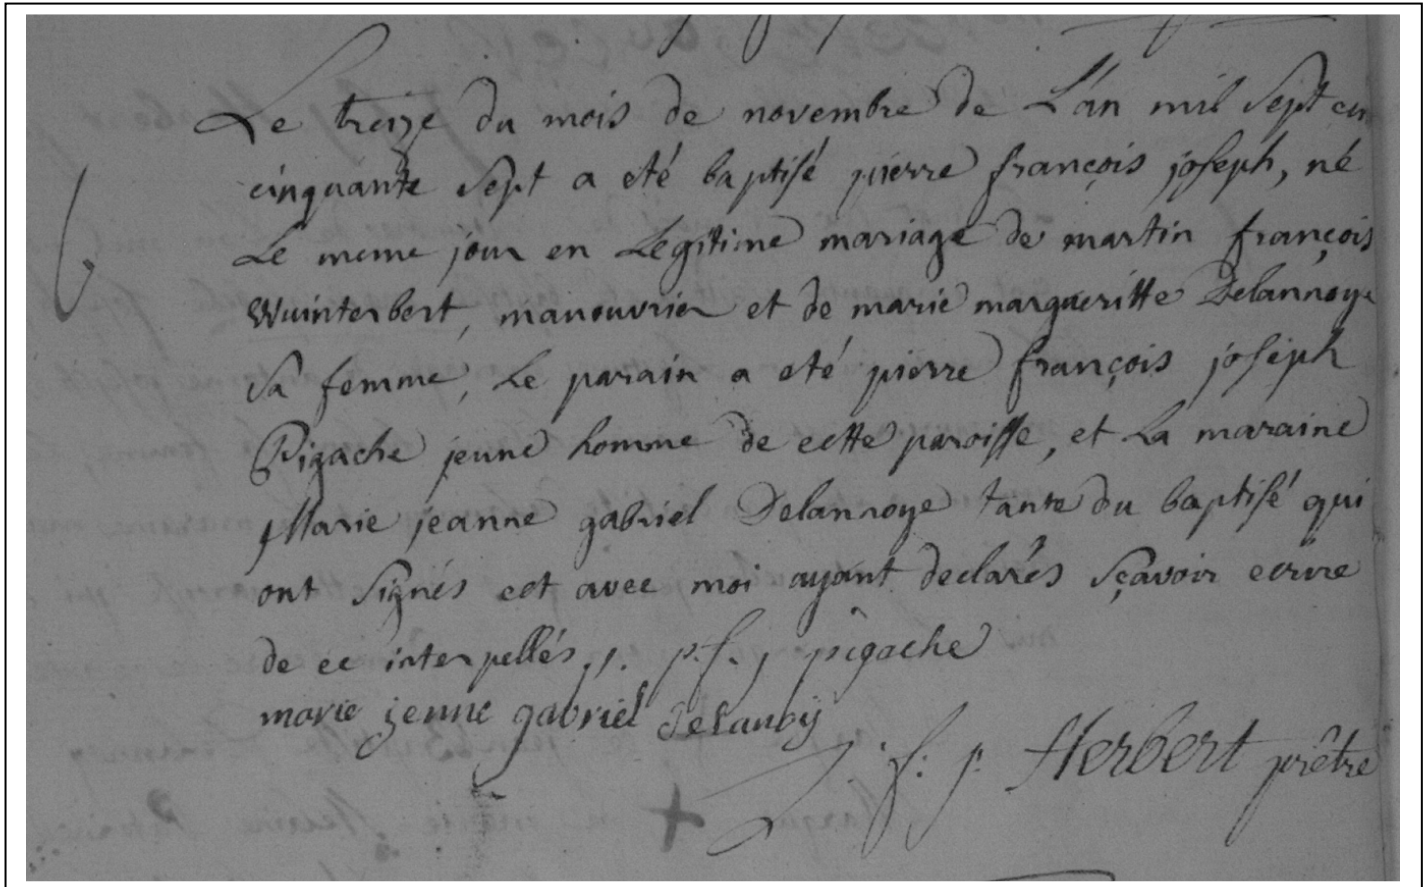 Le treize du mois de novembre de L'an mil Sept cen
cinquante Sept a eté baptisé pierre françois joseph, né
Le meme jour en Legitime mariage de martin françois
Wuinterbert, manouvrier et de marie margueritte Delannoye
Sa femme, Le parain a eté pierre françois joseph
Pigache jeune homme de cette paroisse, et La maraine
Marie jeanne gabriel Delannoye tante du baptisé qui
ont Signés cet avec moi ayant declarés Sçavoir ecrire
de ce interpellés. p. f. j pigache
marie jenne gabriel delanoy
j. f. j. Herbert prêtre